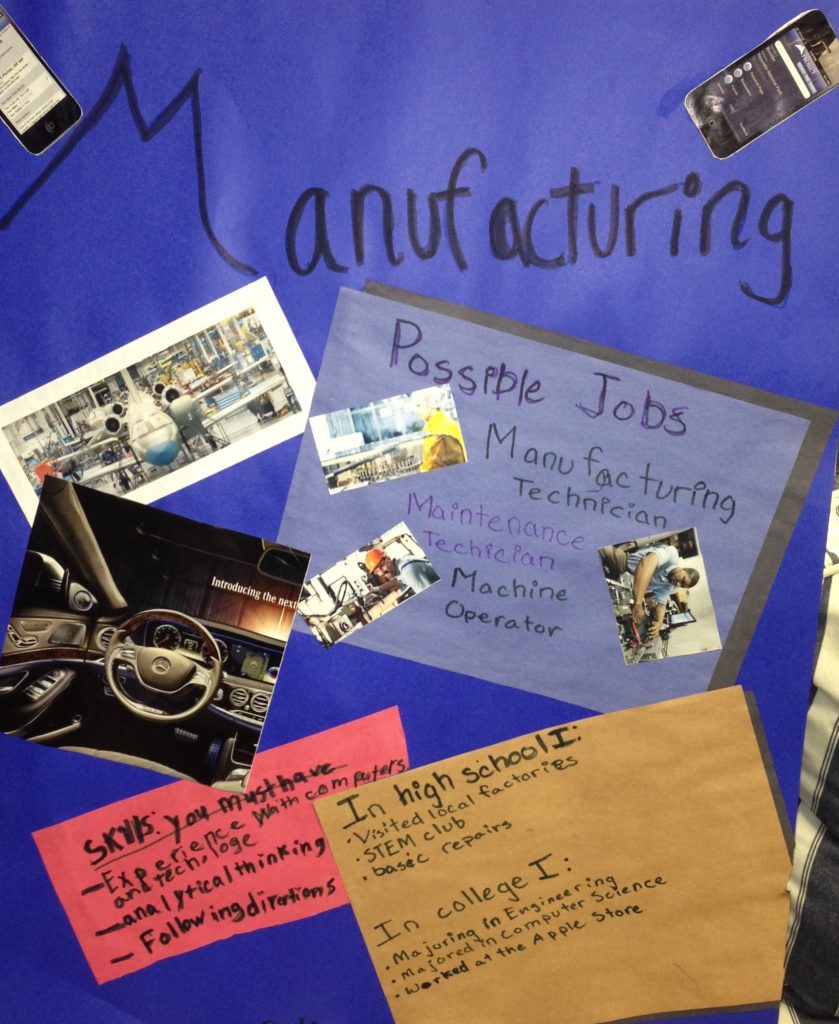 Manufacturing
Possible Jobs
Manufacturing
Technician
Maintenance
Techician
Machine
Operator
Introducing the next
Skills: You must have
- Experience with computers
and techologe
- analytical thinking
- Following dirations
In high school I:
• Visited local factories
• STEM club
• basic repairs
In college I:
• Majuring in Engineering
• Majored in Computer Science
• Worked at the Apple Store